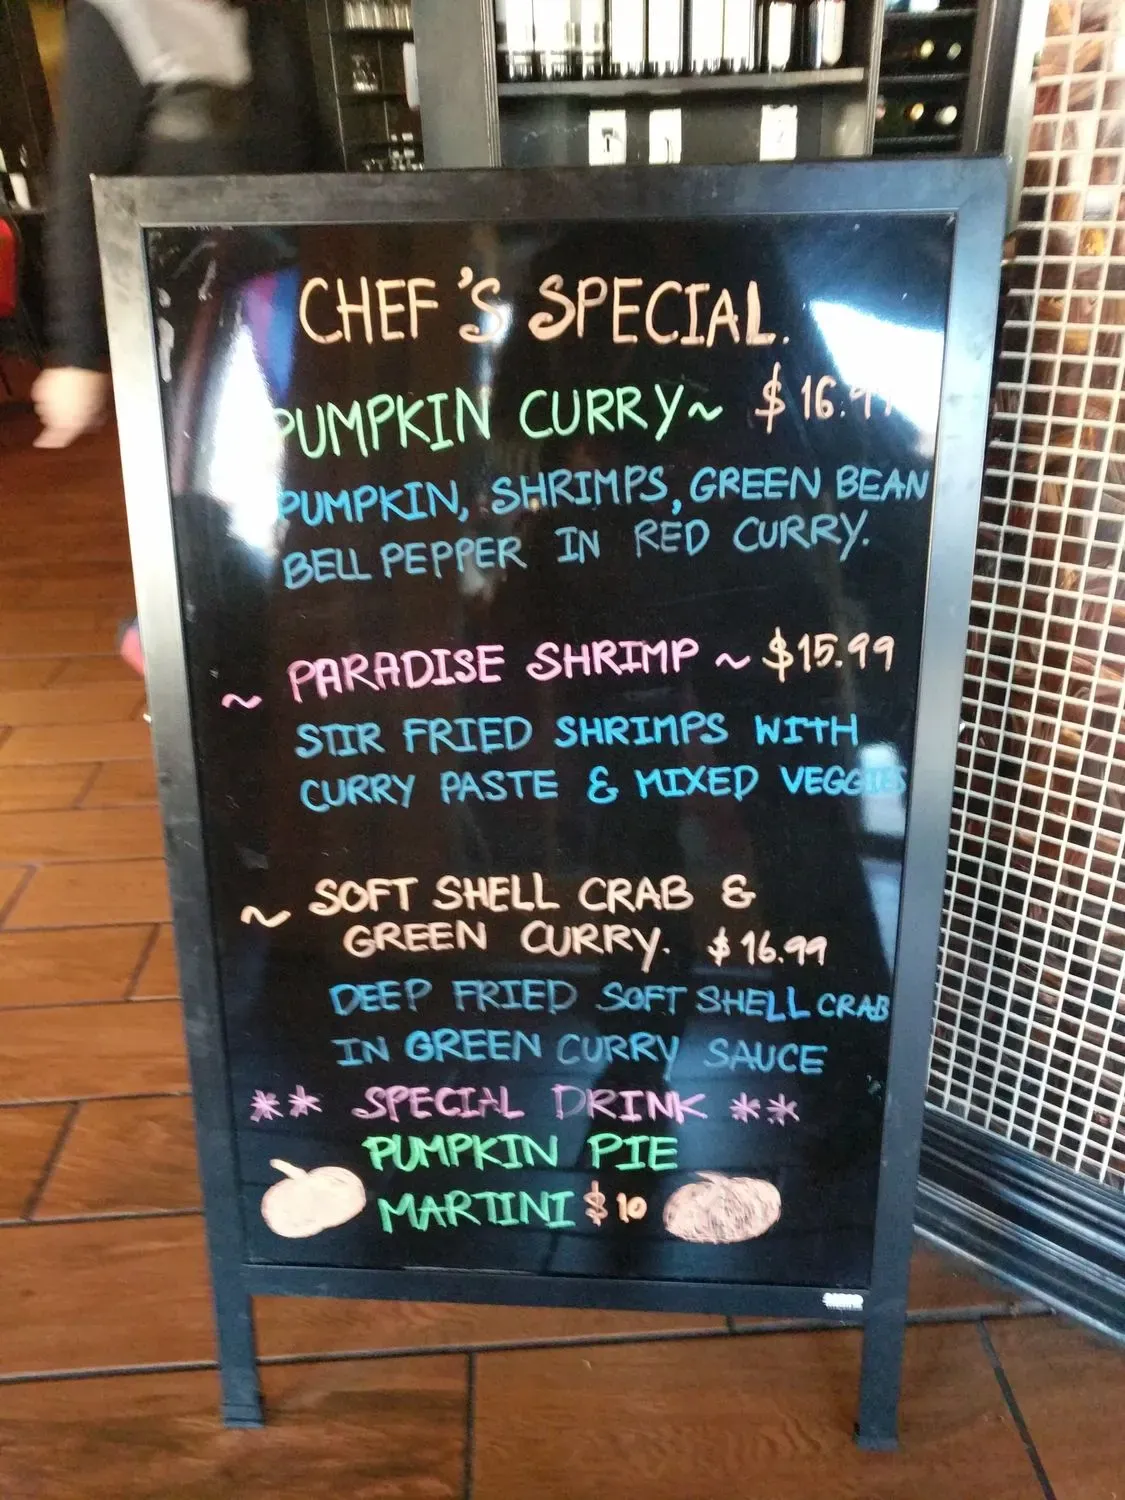 CHEF'S SPECIAL.
PUMPKIN CURRY~ $16.99
PUMPKIN, SHRIMPS, GREEN BEAN
BELL PEPPER IN RED CURRY.
~ PARADISE SHRIMP ~ $15.99
STIR FRIED SHRIMPS WITH
CURRY PASTE & MIXED VEGGIES
~ SOFT SHELL CRAB &
GREEN CURRY. $16.99
DEEP FRIED SOFT SHELL CRAB
IN GREEN CURRY SAUCE
** SPECIAL DRINK **
PUMPKIN PIE
MARTINI $10